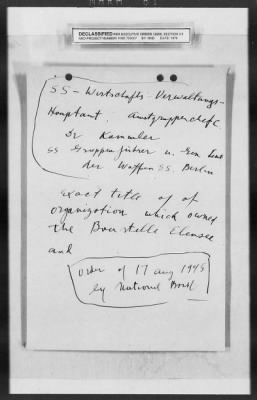 DECLASSIFIED PER EXECUTIVE ORDER 12356, SECTION 3.3
NND PROJECT NUMBER BY DATE
SS - Wirtschafts-Verwaltungs-
Hauptamt. Amtsgruppenchef C
Dr Kammler
SS Gruppenführer u. Gen Leut
der Waffen SS. Berlin
Exact title of of
organization which owned
the Baustelle Ebensee
and
order of 17 aug 1945
by National